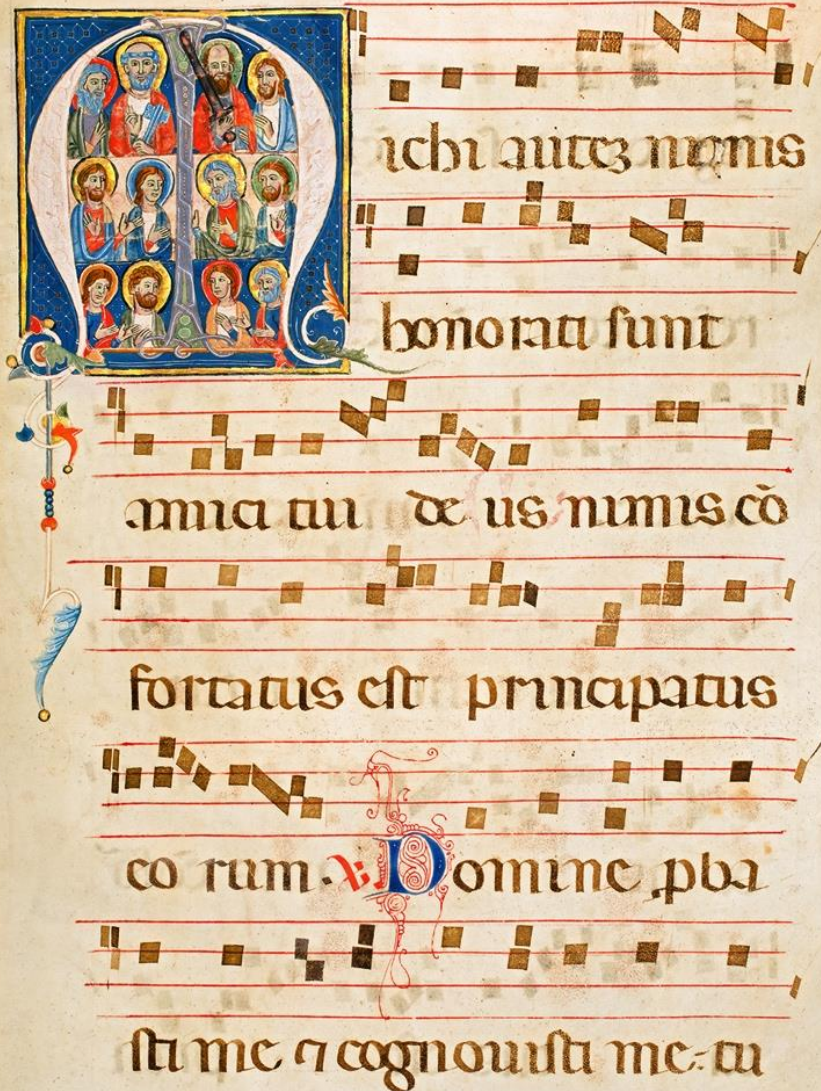 Michi autez nimis
honorati sunt
amici tui de us nimis cō
fortatus est principatus
eo rum. V. Domine ꝓba
sti me ⁊ cognouisti me: tu